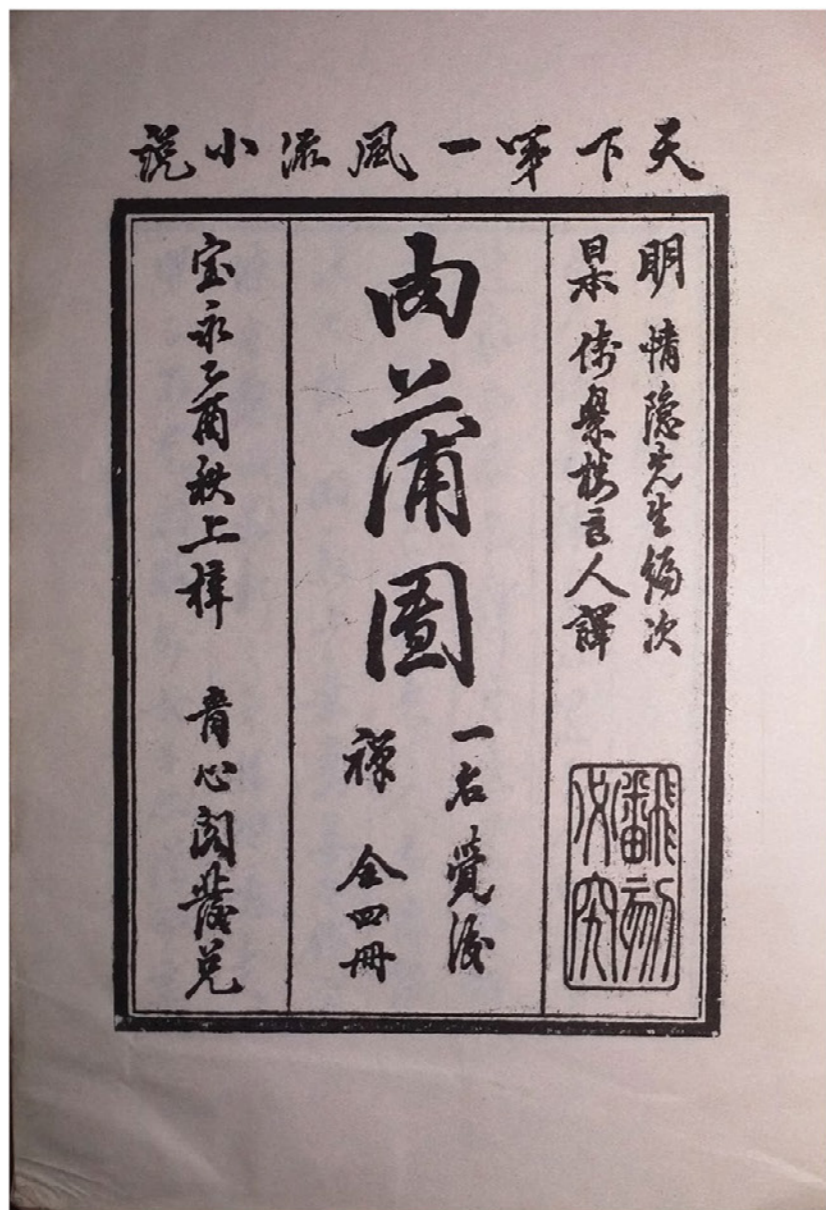 天下第一風流小説
明 情隐先生編次
日本 倚翠楼主人譯
飜刻必究
肉蒲團
一名覺後
禪 全四冊
宝永乙酉秋上梓 青心閣發兌